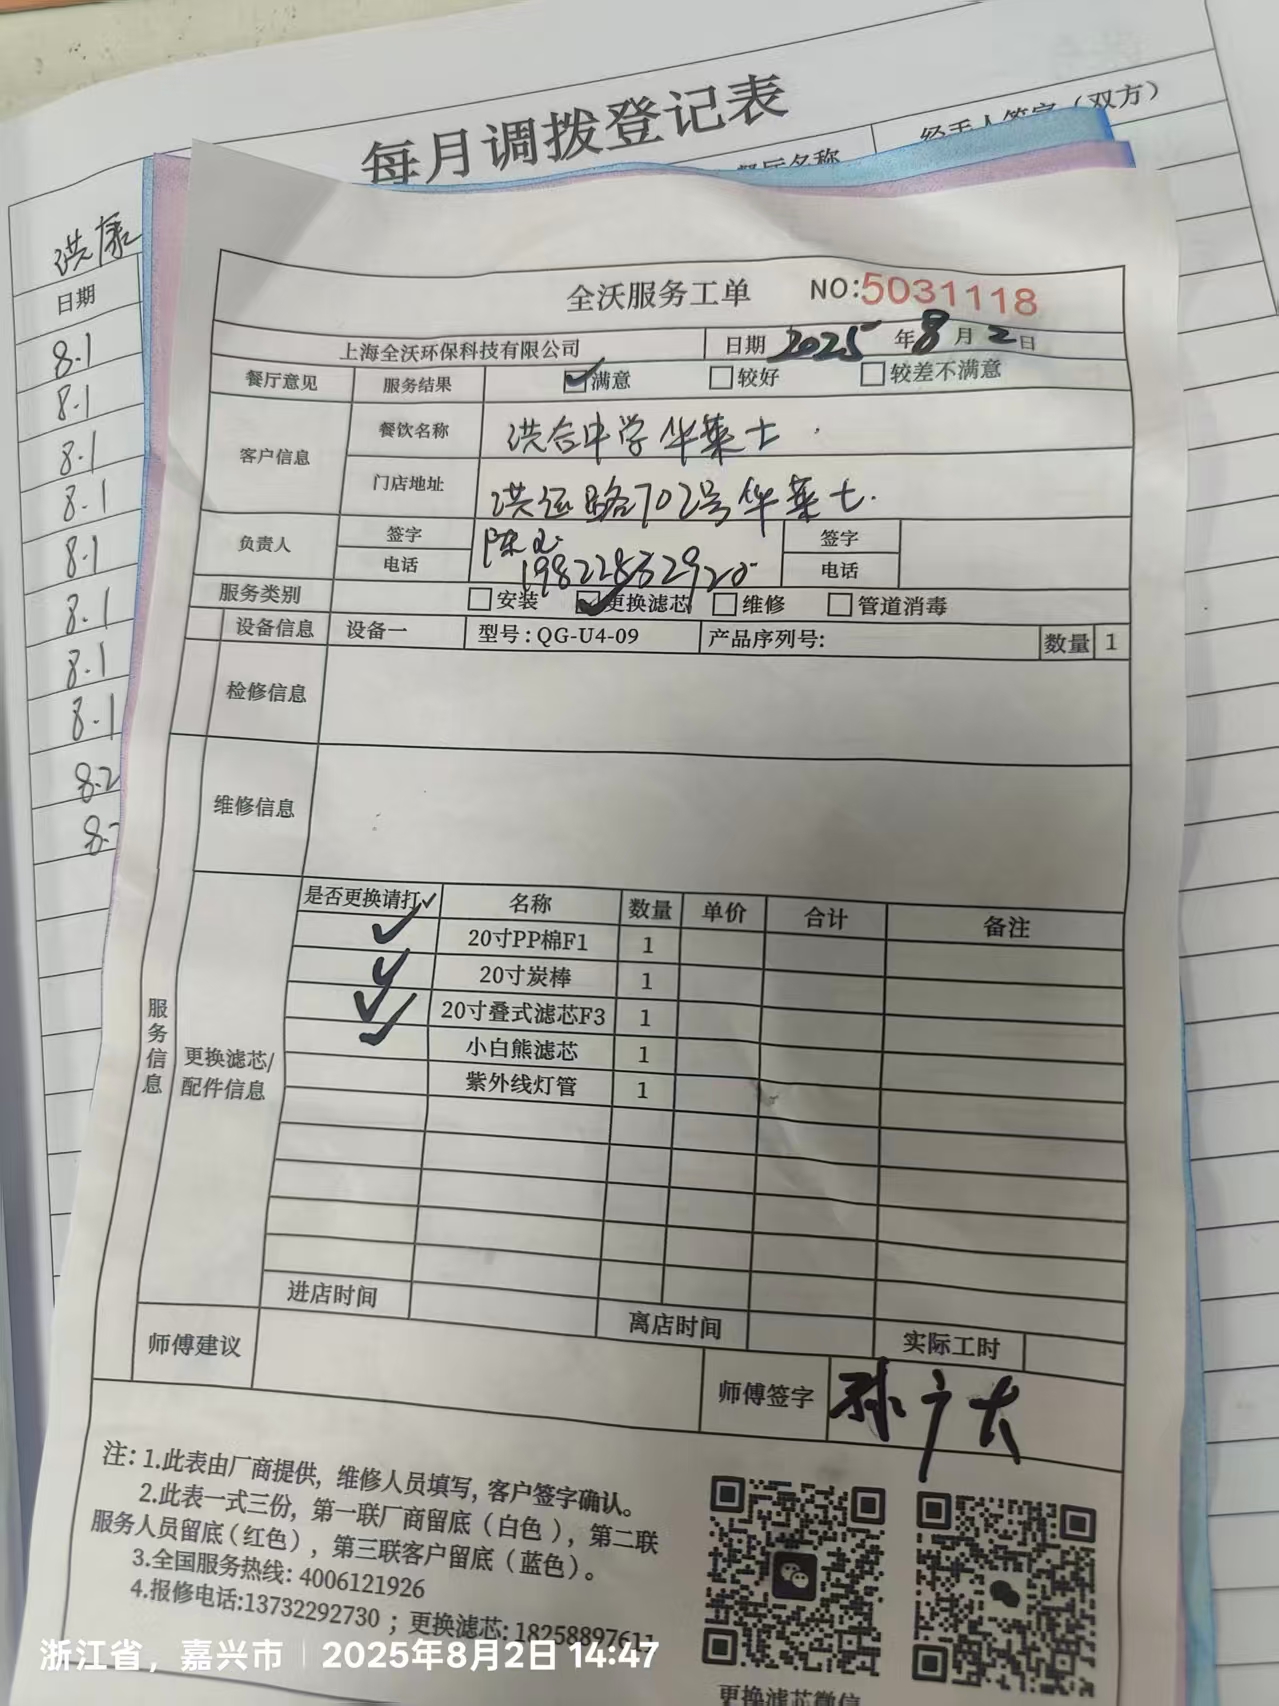 每月调拨登记表
餐厅名称
经手人签字（双方）
洪康
日期
8.1
8.1
8.1
8.1
8.1
8.1
8.1
8.1
8.2
全沃服务工单 NO:5031118
上海全沃环保科技有限公司 日期 2025年8月2日
餐厅意见 服务结果 ☑满意 □较好 □较差不满意
客户信息 餐饮名称 洪合中学华莱士
门店地址 洪运路702号华莱士.
负责人 签字 签字
电话 19822832920 电话
服务类别 □安装 ☑更换滤芯 □维修 □管道消毒
设备信息 设备一 型号：QG-U4-09 产品序列号： 数量 1
检修信息
维修信息
服务信息
更换滤芯/配件信息
是否更换请打✓ 名称 数量 单价 合计 备注
✓ 20寸PP棉F1 1
✓ 20寸炭棒 1
✓ 20寸叠式滤芯F3 1
✓ 小白熊滤芯 1
紫外线灯管 1
进店时间 离店时间 实际工时
师傅建议 师傅签字 孙广大
注：1.此表由厂商提供，维修人员填写，客户签字确认。
2.此表一式三份，第一联厂商留底（白色），第二联
服务人员留底（红色），第三联客户留底（蓝色）。
3.全国服务热线：4006121926
4.报修电话:13732292730；更换滤芯：18258897611
更换滤芯微信
浙江省，嘉兴市 | 2025年8月2日 14:47